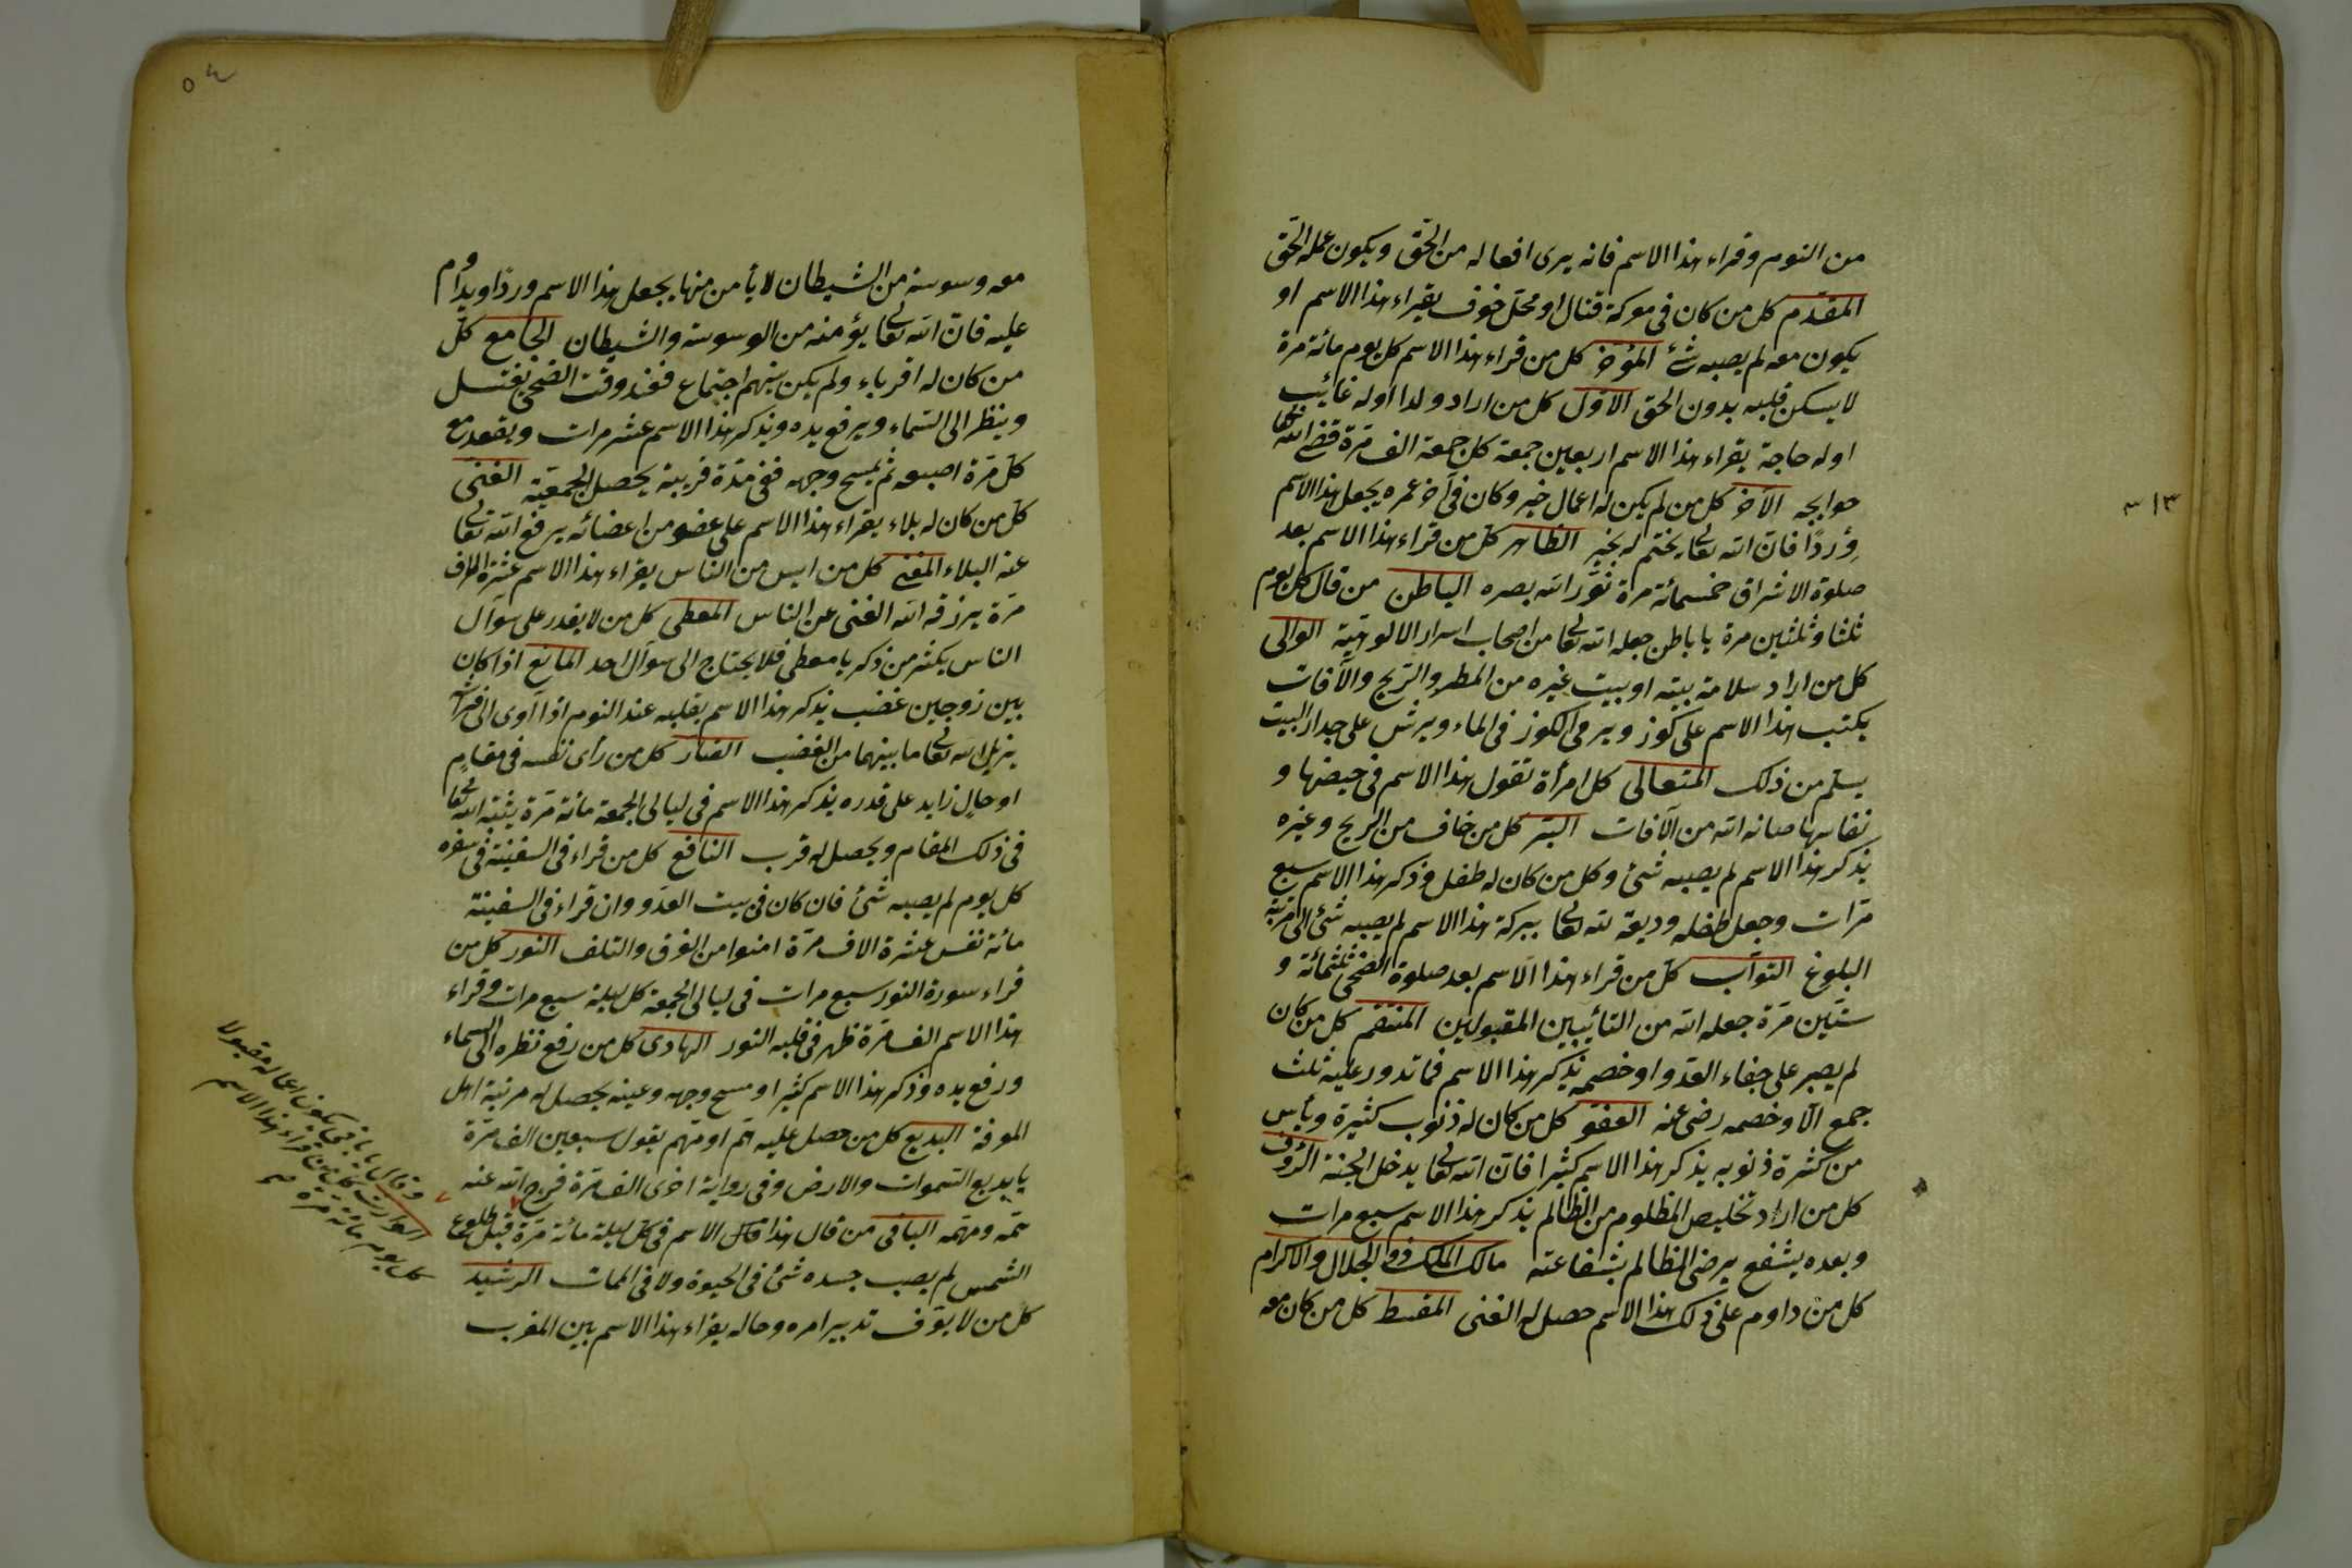 من النوم وقراء هذا الاسم فانه يرى افعاله من الحق ويكون عمله الحق
المقدّم كل من كان فى معركة قتال او محلّ خوف يقراء هذا الاسم او
يكون معه لم يصبه شئ المؤخر كل من قراء هذا الاسم كل يوم مائة مرة
لا يسكن قلبه بدون الحق الاوّل كل من اراد ولدا اوله غائب
اوله حاجة يقراء هذا الاسم اربعين جمعة كل جمعة الف مرّة قضى الله تعا
حوايجه الآخر كل من لم يكن له اعمال خير وكان فى آخر عمره يجعل هذا الاسم
وِرْدًا فانّ الله تعالى يختم له بخير الظاهر كل من قراء هذا الاسم بعد
صلوة الاشراق خمسمائة مرة نوّر الله بصره الباطن من قال كل يوم
ثلثا وثلثين مرة يا باطن جعله الله تعا من اصحاب اسرار الالوهيّة الوالى
كل من اراد سلامة بيته او بيت غيره من المطر والرّيح والآفات
يكتب هذا الاسم على كوز ويرمى الكوز فى الماء ويرش على جدار البيت
يسلم من ذلك المتعالى كل امرأة تقول هذا الاسم فى حيضها و
نفاسها صانه الله من الآفات البرّ كل من خاف من الريح وغيره
يذكر هذا الاسم لم يصبه شئ وكل من كان له طفل وذكر هذا الاسم سبع
مرّات وجعل طفله وديعة لله تعا ببركة هذا الاسم لم يصبه شئ الى مرتبة
البلوغ التوّاب كلّ من قراء هذا الاسم بعد صلوة الضحى ثلثمائة و
ستّين مرّة جعله الله من التائبين المقبولين المنتقم كل من كان
لم يصبر على جفاء العدو او خصمه يذكر هذا الاسم فما تدور عليه ثلث
جمع الّا وخصمه رضى عنه العفوّ كل من كان له ذنوب كثيرة ويأس
من كثرة ذنوبه يذكر هذا الاسم كثيرا فانّ الله تعا يدخل الجنة الرّؤف
كل من اراد تخليص المظلوم من الظالم يذكر هذا الاسم سبع مرات
وبعده يشفع يرضى الظالم بشفاعته مالك الملك ذو الجلال والاكرام
كل من داوم على ذلك هذا الاسم حصل له الغنى المقسط كل من كان معه
٣١٣
معه وسوسة من الشيطان لا يأمن منها يجعل هذا الاسم وردًا ويداوم
عليه فانّ الله تعا يؤمنه من الوسوسة والشيطان الجامع كلّ
من كان له اقرباء ولم يكن بينهم اجتماع فعند وقت الضحى يغتسل
وينظر الى السّماء ويرفع يده ويذكر هذا الاسم عشر مرات ويعقد مع
كلّ مرّة اصبعه ثم يمسح وجهه ففى مدّة قريبة يحصل الجمعيّة الغنى
كلّ من كان له بلاء يقراء هذا الاسم على عضو من اعضائه يرفع الله تعا
عنه البلاء المغنى كل من ايس من الناس يقراء هذا الاسم عشرة الاف
مرّة يرزقه الله الغنى عن الناس المعطى كل من لا يقدر على سوآل
الناس يكثر من ذكر يا معطى فلا يحتاج الى سوآل احد المانع اذا كان
بين زوجين غضب يذكر هذا الاسم بقلبه عند النوم اذا آوى الى فراشه
يزيل الله تعا ما بينهما من الغضب الضارّ كل من رأى نفسه فى مقامٍ
او حالٍ زايد على قدره يذكر هذا الاسم فى ليالى الجمعة مائة مرّة يثبته الله تعا
فى ذلك المقام ويحصل له قرب النافع كل من قراء فى السفينة فى سفره
كل يوم لم يصبه شئ فان كان فى بيت العدوّ وان قراء فى السفينة
مائة نفس عشرة الاف مرّة امنوا من الغرق والتلف النور كل من
قراء سورة النور سبع مرات فى ليالى الجمعة كل ليلة سبع مرات وقراء
هذا الاسم الف مرّة ظهر فى قلبه النور الهادى كل من رفع نظره الى السماء
ورفع يده وذكر هذا الاسم كثيرا ومسح وجهه وعينه يحصل له مرتبة اهل
المعرفة البديع كل من حصل عليه همّ او مهّم يقول سبعين الف مرّة
يا بديع السّموات والارض وفى رواية اخرى الف مرّة فرج الله عنه
همّه ومهمّه الباقى من قال هذا الاسم فى كلّ ليلة مائة مرّة قبل طلوع
الشمس لم يصب جسده شئ فى الحيوة ولا فى الممات الرشيد
كل من لا يعرف تدبير امره وحاله يقراء هذا الاسم بين المغرب
وقال يا باقى يكون اعماله مقبولا
الوارث كل من قراء هذا الاسم
كل يوم مائة مرة